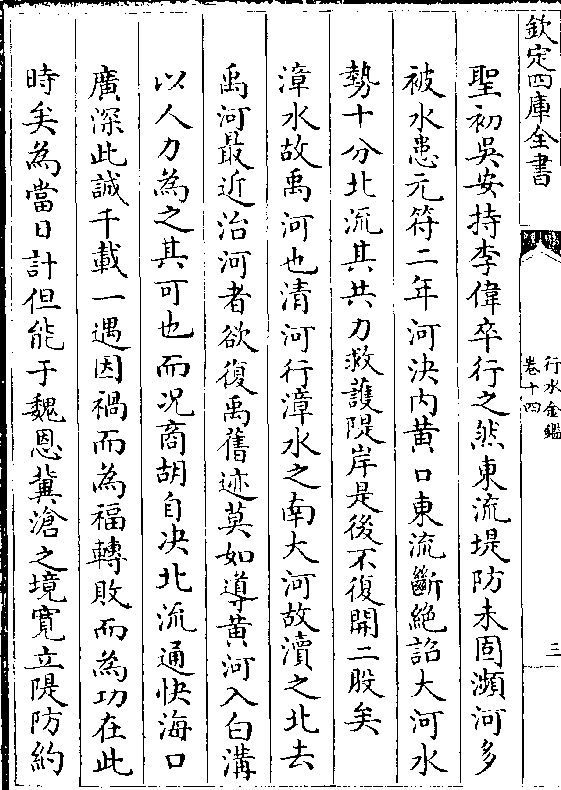 欽定四庫全書
行水金鑑
卷十四
三
聖初吳安持李偉卒行之然東流堤防未固瀕河多
被水患元符二年河決内黄口東流斷絶詔大河水
勢十分北流其共力救護隄岸是後不復開二股矣
漳水故禹河也清河行漳水之南大河故瀆之北去
禹河最近治河者欲復禹舊迹莫如導黄河入白溝
以人力為之其可也而况商胡自决北流通快海口
廣深此誠千載一遇因禍而為福轉敗而為功在此
時矣為當日計但能于魏恩冀滄之境寛立隄防約